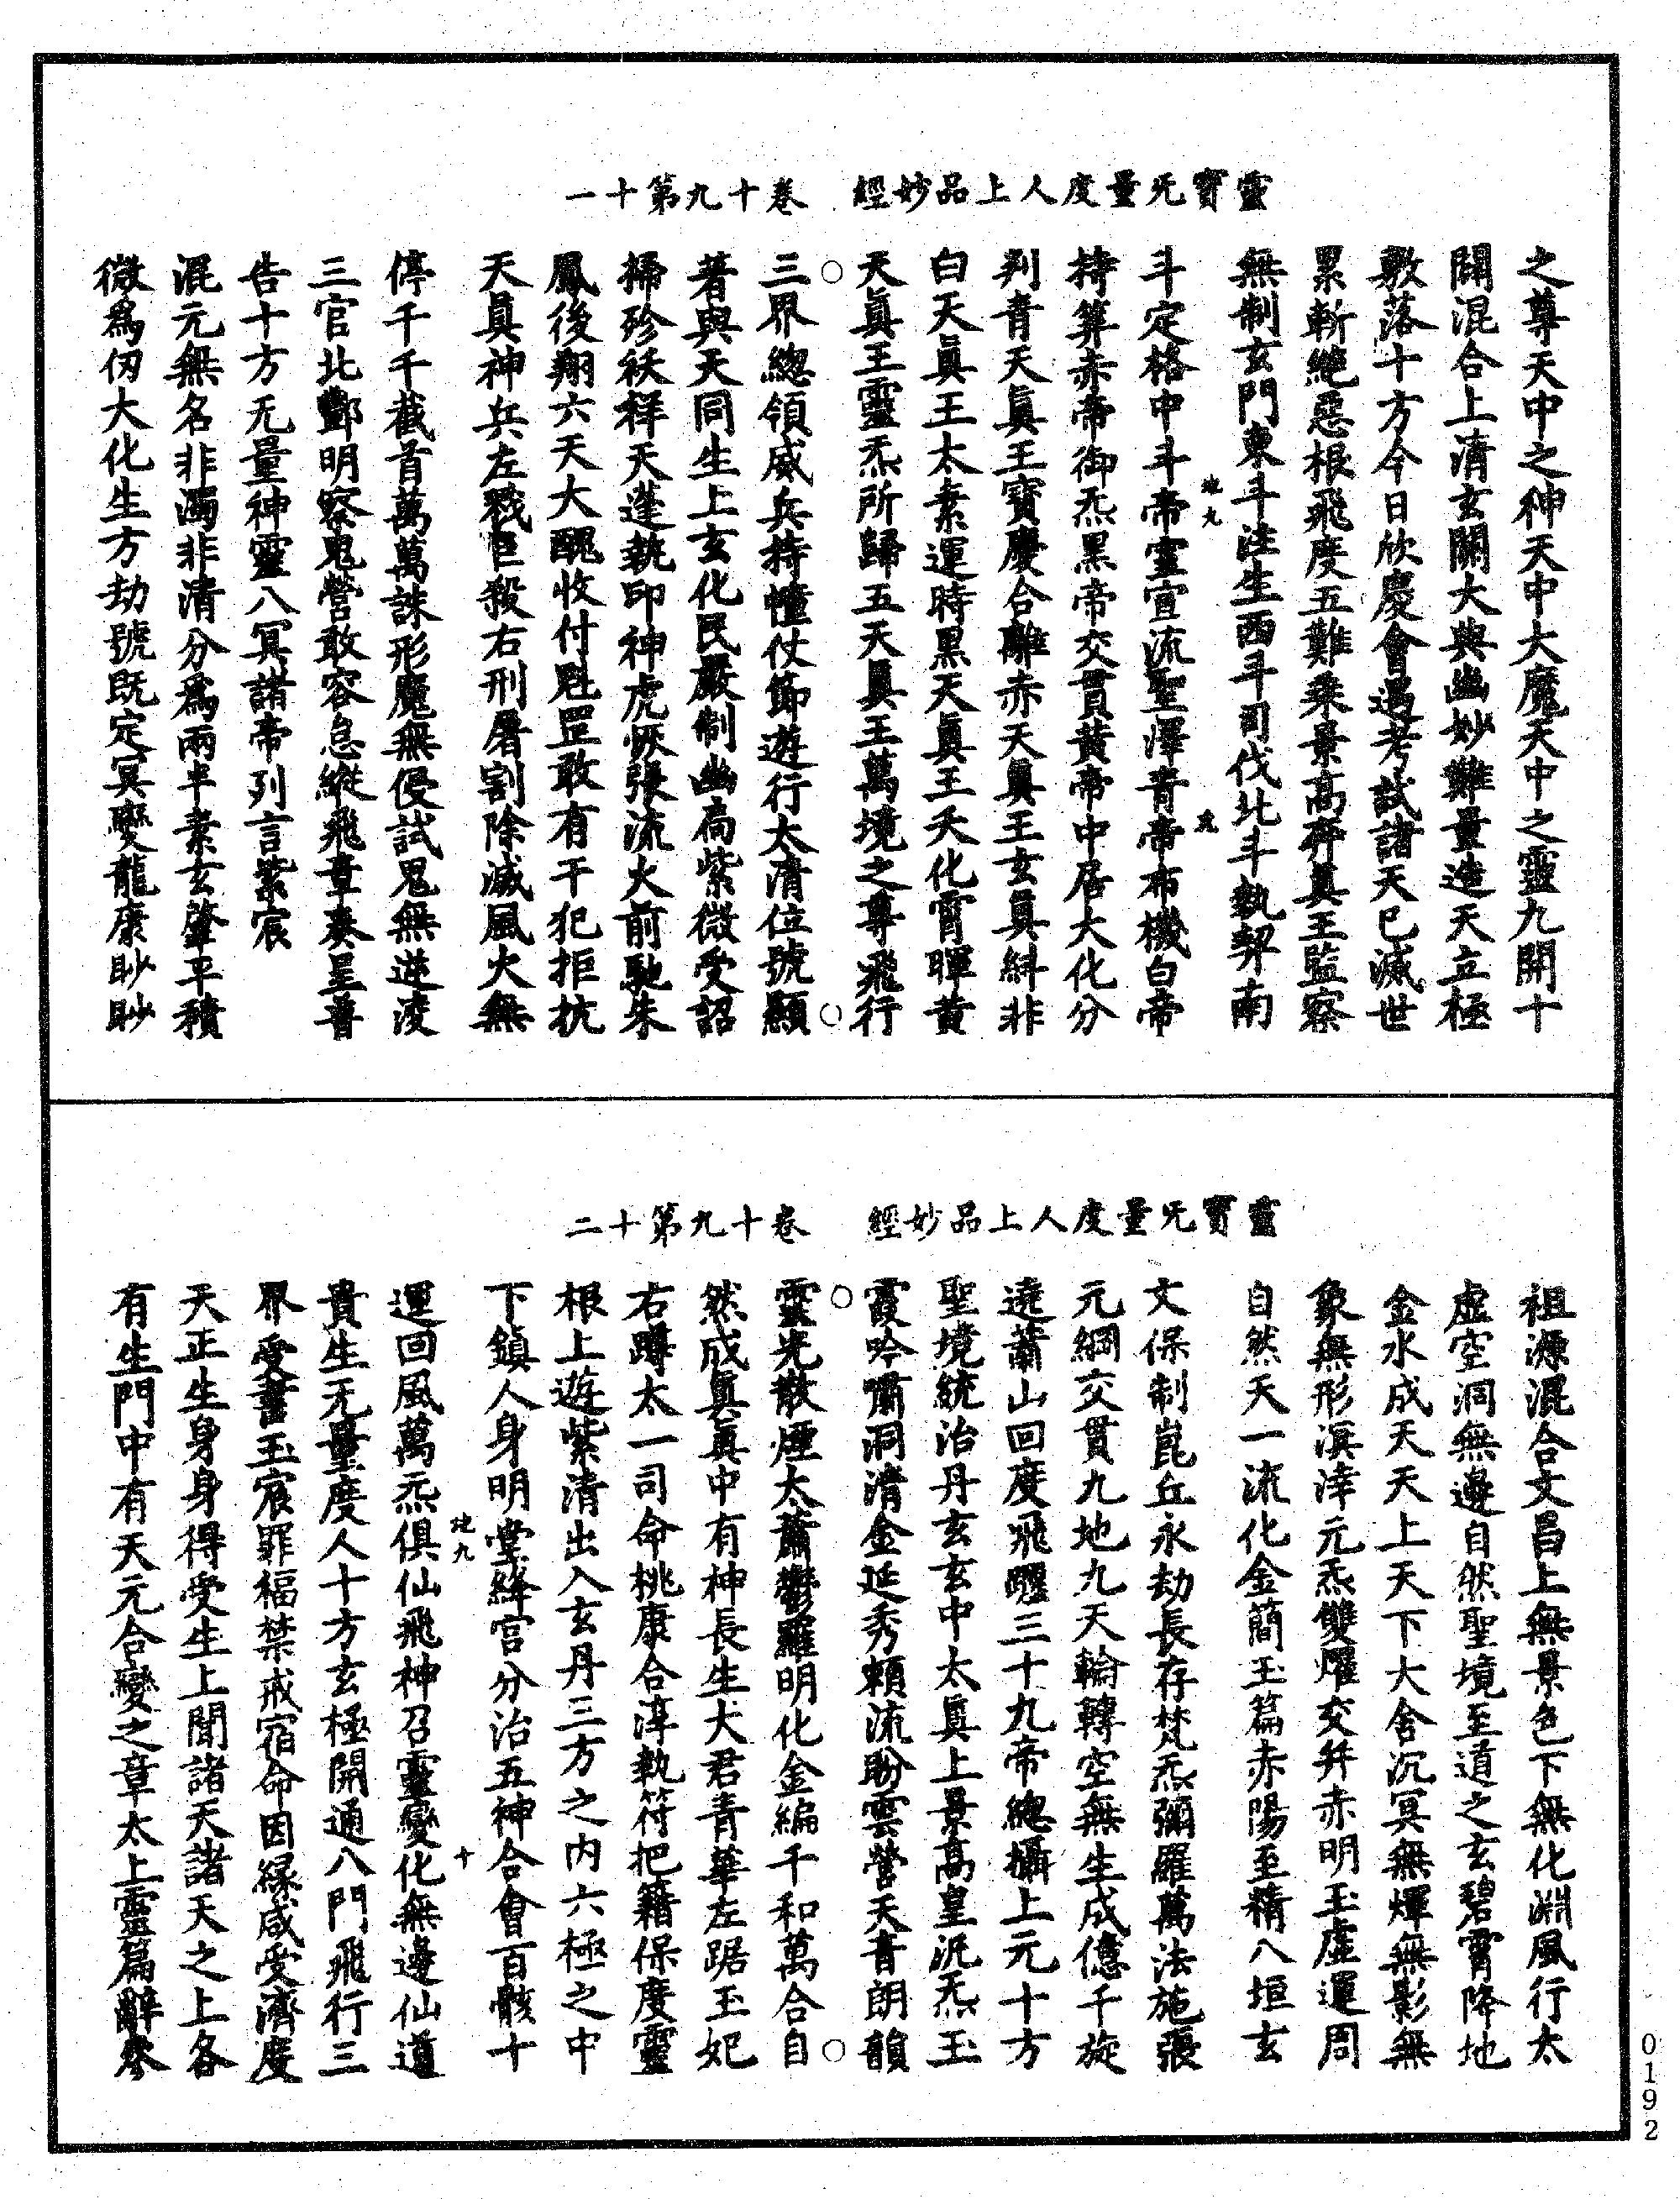 靈寶旡量度人上品妙經　卷十九第十一
之尊天中之神天中大魔天中之靈九開十
關混合上清玄關大與幽妙難量造天立極
敷落十方今日欣慶會遇考試諸天已滅世
累斬絕惡根飛度五難乘景高奔真王監察
無制玄門東斗注生西斗司伐北斗執契南
斗定格中斗帝靈宣流聖澤青帝布機白帝
持筭赤帝御炁黑帝交貫黃帝中居大化分
判青天真王寶慶合離赤天真王玄真糾非
白天真王太素運時黑天真王天化霄暉黃
天真王靈炁所歸五天真王萬境之尊飛行
三界總領威兵持幢仗節遊行太清位號顯
著與天同生上玄化民嚴制幽扃紫微受詔
掃殄袄祥天蓬執印神虎恢張流火前馳朱
鳳後翔六天大醜收付魁罡敢有干犯拒抗
天真神兵左戮巨殺右刑屠割除滅風火無
停千千截首萬萬誅形魔無侵試鬼無逆凌
三官北酆明察鬼營敢容怠縱飛章奏呈普
告十方无量神靈八冥諸帝列言紫宸
混元無名非濁非清分為兩半素玄肇平積
微為仞大化生方劫號既定冥變龍康眇眇
地九
晟
靈寶旡量度人上品妙經　卷十九第十二
祖源混合文昌上無景色下無化淵風行太
虛空洞無邊自然聖境至道之玄碧霄降地
金水成天天上天下大含沉冥無煇無影無
象無形溟涬元炁雙燿交并赤明玉虛運周
自然天一流化金簡玉篇赤陽至精八垣玄
文保制崑丘永劫長存梵炁彌羅萬法施張
元綱交貫九地九天輪轉空無生成億千旋
遶蕭山回度飛躍三十九帝總攝上元十方
聖境統治丹玄玄中太真上景高皇汎炁玉
霞吟嘯洞清金延秀頼流盼雲營天音朗韻
靈光散煙太蕭鬱羅明化金編千和萬合自
然成真真中有神長生大君青華左踞玉妃
右蹲太一司命桃康合淳執符把籍保度靈
根上遊紫清出入玄丹三方之內六極之中
下鎮人身明堂絳宮分治五神合會百骸十
運回風萬炁俱仙飛神召靈變化無邊仙道
貴生无量度人十方玄極開通八門飛行三
界受書玉宸罪福禁戒宿命因緣咸受濟度
天正生身身得受生上聞諸天諸天之上各
有生門中有天元合變之章太上靈篇辭參
地九
十
0192